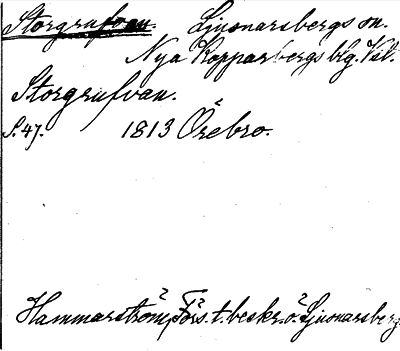 Storgrufvan. Ljusnarsbergs sn.
Nya Kopparbergs blg. Vstl.
Storgrufvan.
S. 47. 1813 Örebro.
Hammarström, Förs. t. beskr. ö. Ljusnarsberg